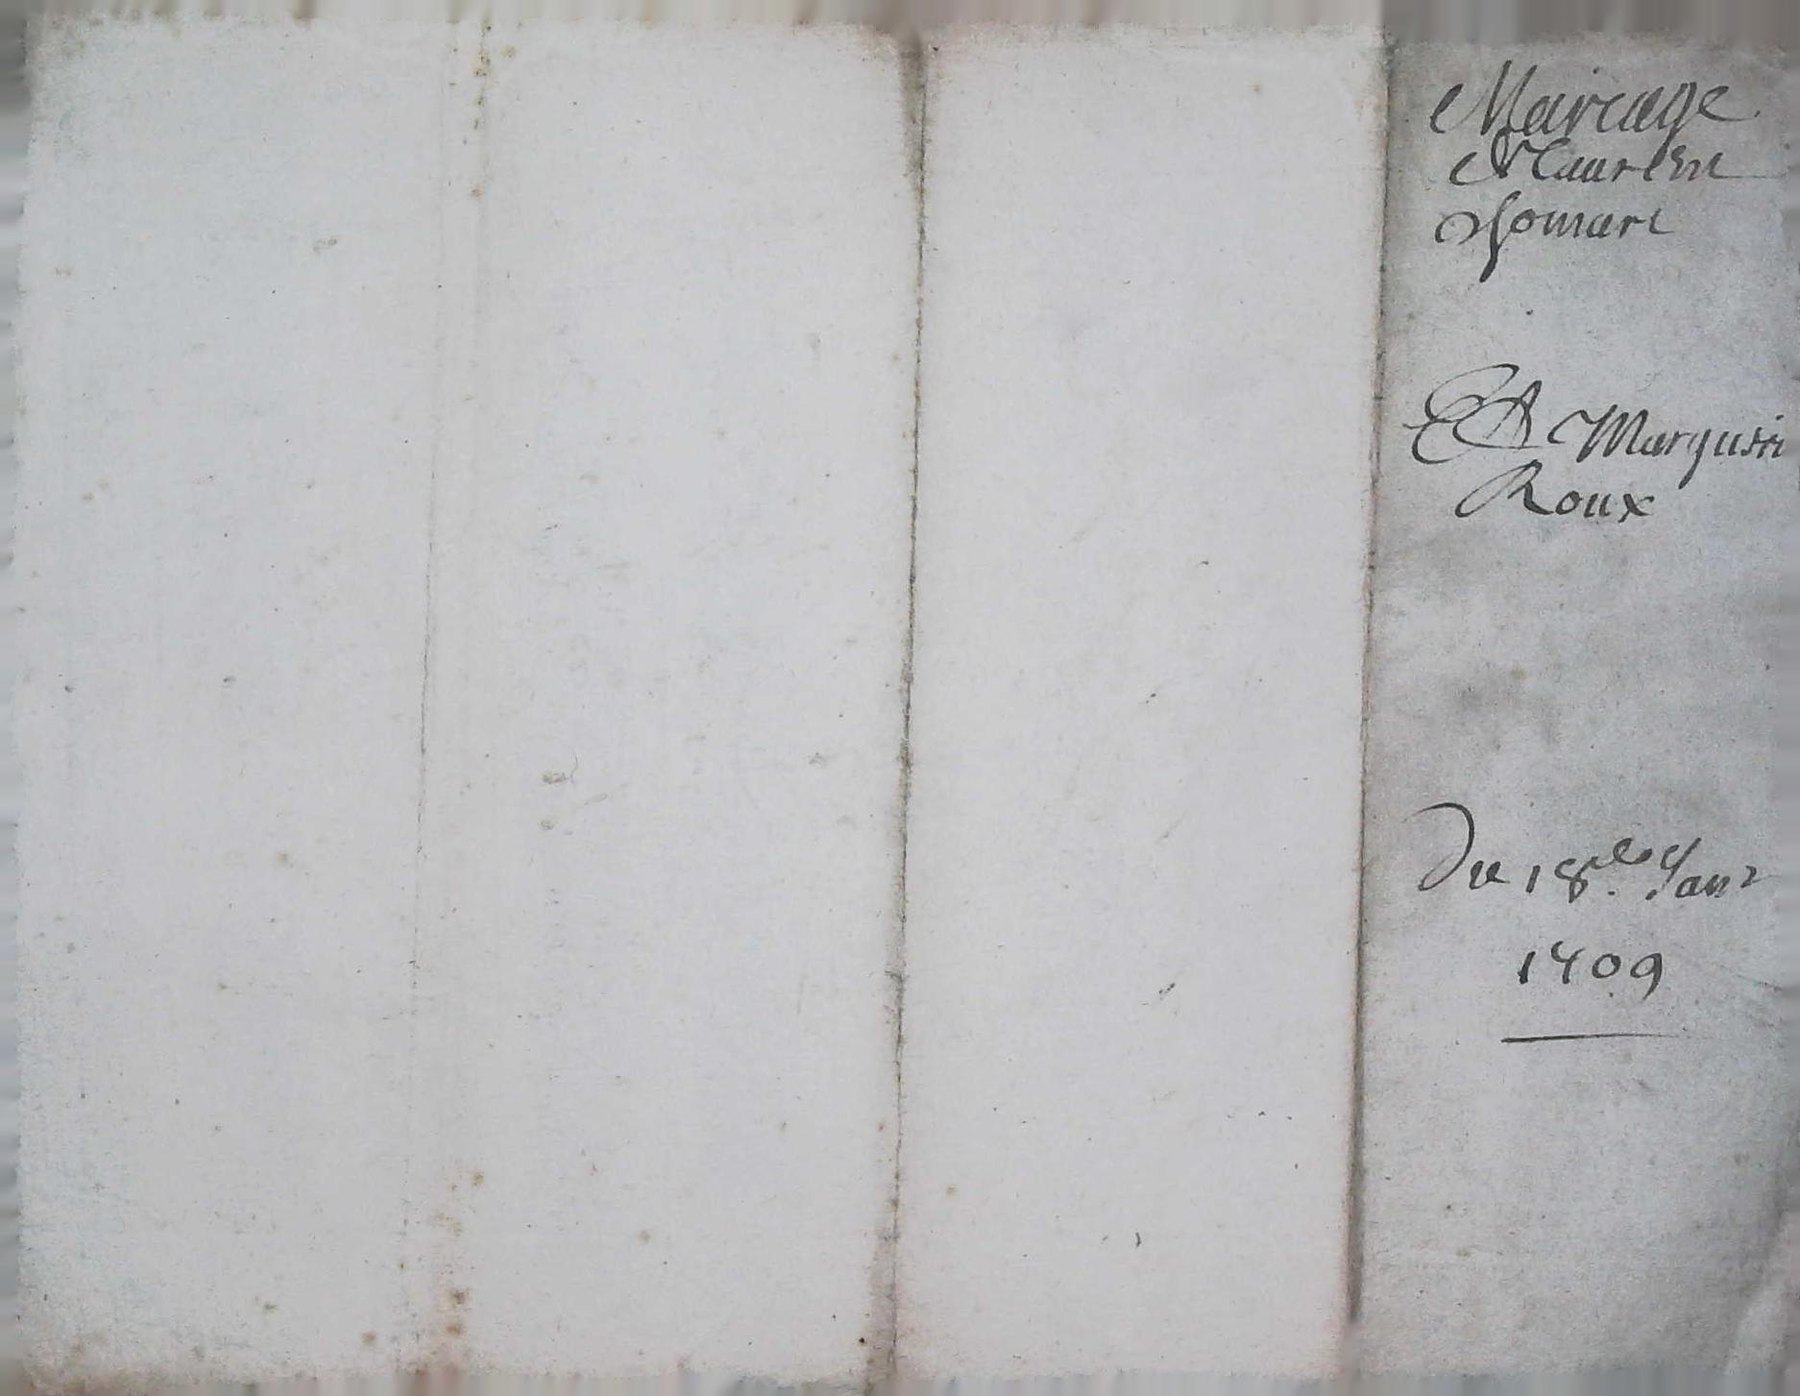 Mariage
Laurent
Et Margueri
Roux
Du 18.e Janr
1709